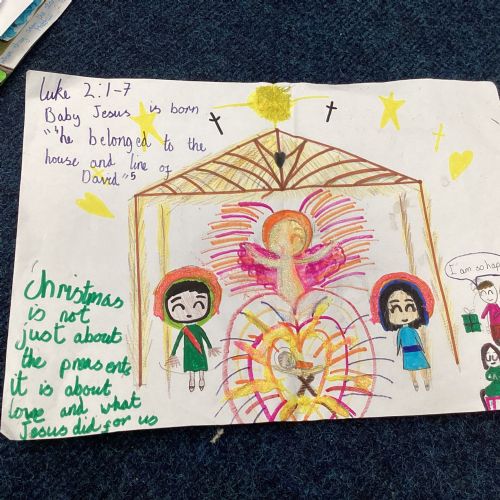 Luke 2:1-7
Baby Jesus is born
"he belonged to the
house and line of
David"5
Christmas
is not
just about
the presents
it is about
love and what
Jesus did for us
I am so hap